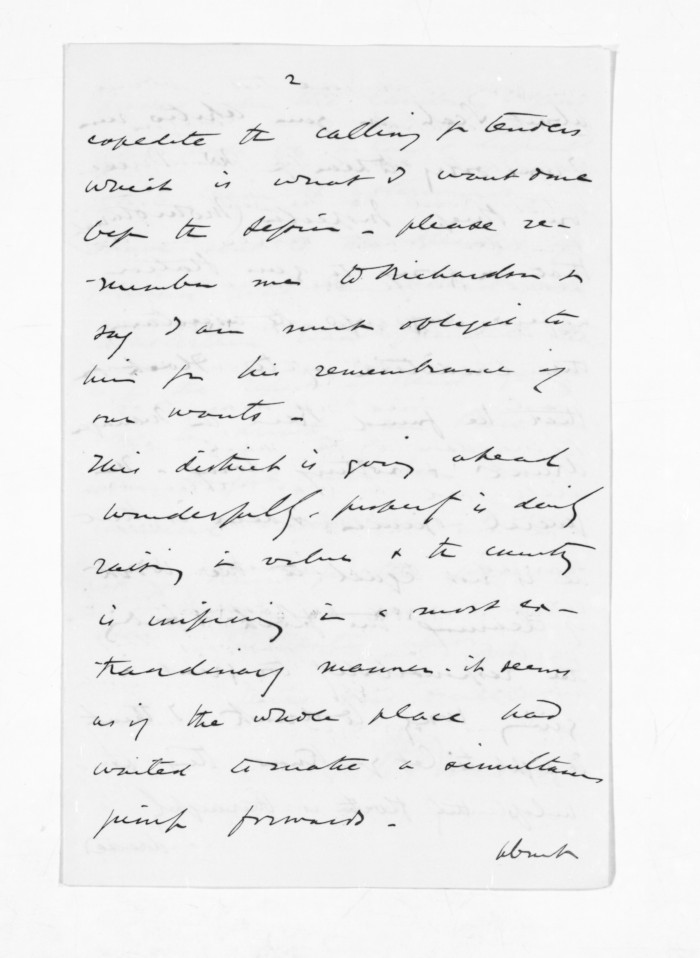 2
expedite the calling for tenders
which is what I want done
before the Session - please re-
-member me to Richardson &
say I am much obliged to
him for his remembrance of
our wants -
This district is going ahead
wonderfully - property is daily
raising in value & the country
is improving in a most ex-
traordinary manner - it seems
as if the whole place had
waited to make a simultaneous
jump forwards -
about